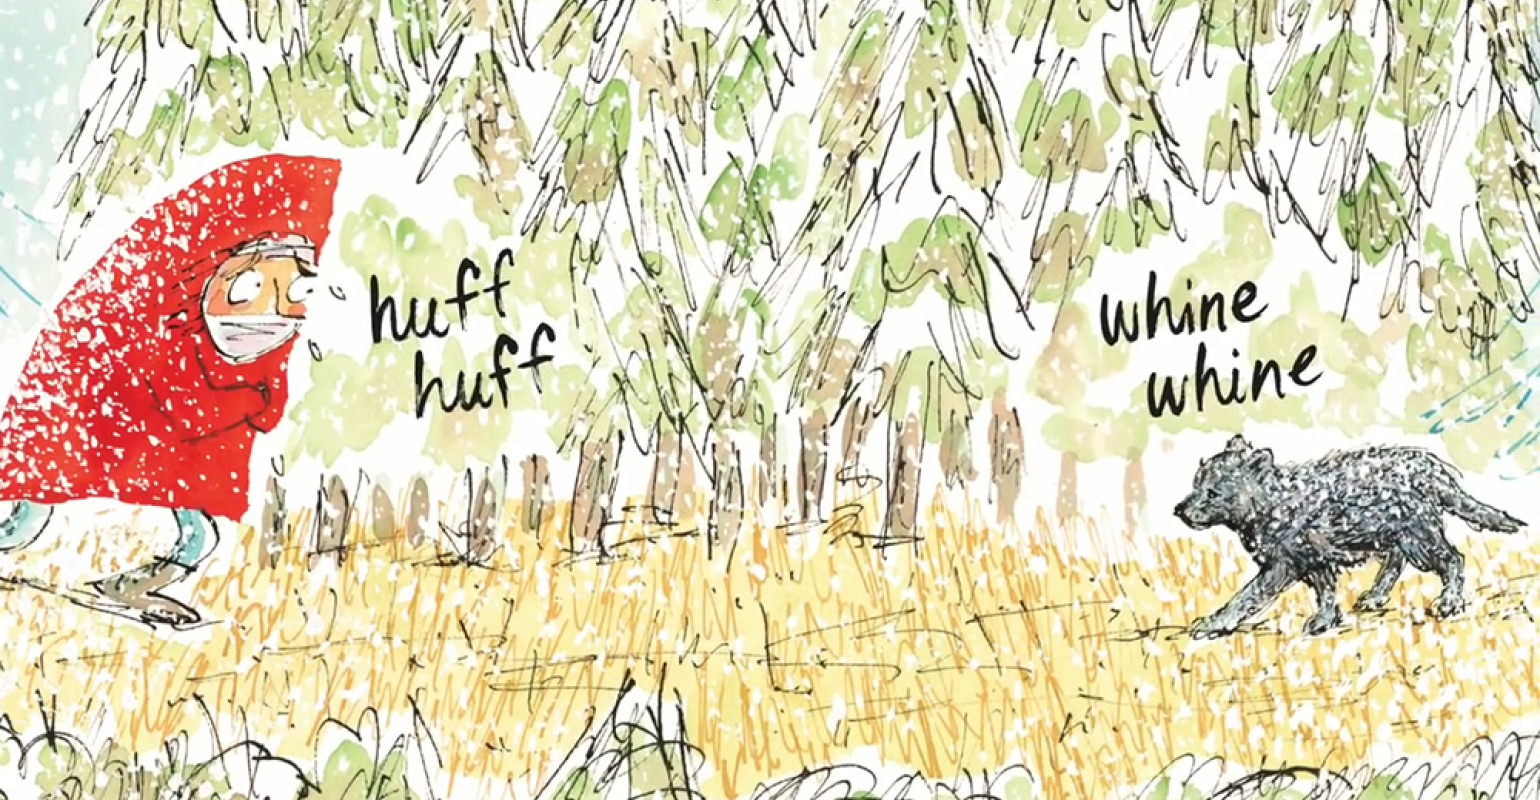 huff
huff
whine
whine